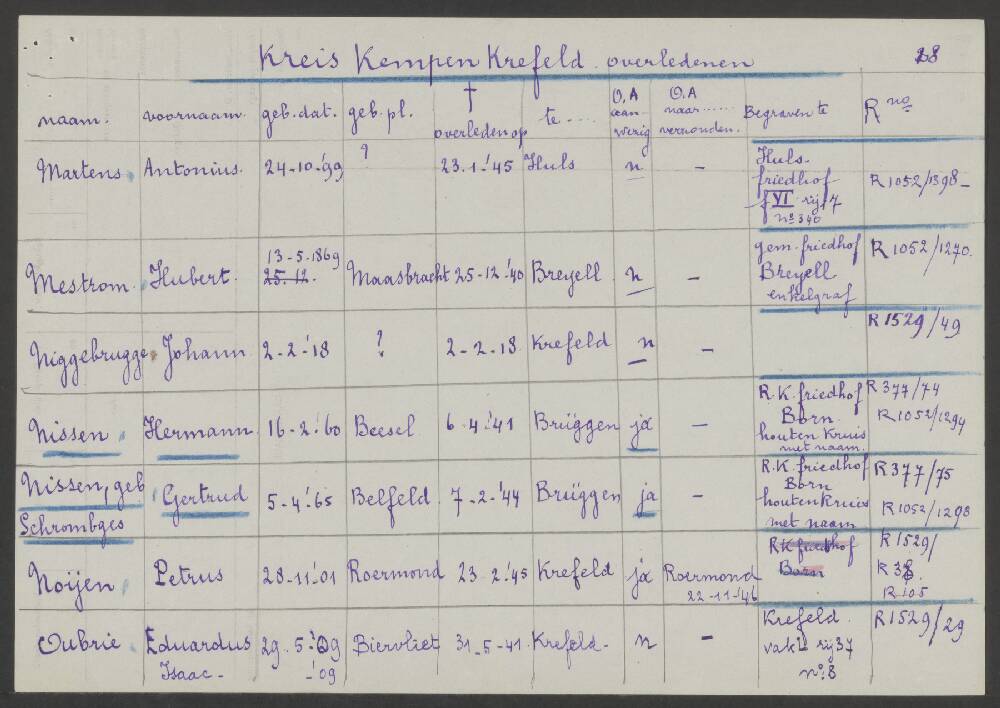 Kreis Kempen Krefeld. overledenen 28
naam. voornaam. geb. dat. geb. pl. † overleden op te ..... O.A aan-wezig O.A naar ...... verzonden. Begraven te R no
Martens. Antonius. 24-10-'99 ? 23.1-'45 Huls n – Huls-
friedhof
f VI rij 17
no 340
R1052/1398-
Mestrom. Hubert. 13-5-1869
25.12. Maasbracht 25-12-'40 Breyell n – gem. friedhof
Breyell
enkelgraf
R1052/1270.
Niggebrugge Johann 2-2-'18 ? 2-2-18 Krefeld n – R1529/49
Nissen Hermann 16-2-'60 Beesel 6-4-'41 Brüggen ja – R.K. friedhof
Born
houten Kruis
met naam.
R377/74
R1052/1294
Nissen, geb
Schrombges
Gertrud 5-4-'65 Belfeld. 7-2-'44 Brüggen ja – R.K. friedhof
Born
houten Kruis
met naam
R377/75
R1052/1298
Noijen Petrus 28-11-'01 Roermond 23-2-'45 Krefeld ja Roermond
22-11-'46
RK friedhof
Born
R1529/
R38.
R105
Oubrie. Eduardus
Isaac-
29.5-'09
-'09
Biervliet 31-5-41. Krefeld- n – Krefeld.
vak L rij 37
no: 8
R1529/29